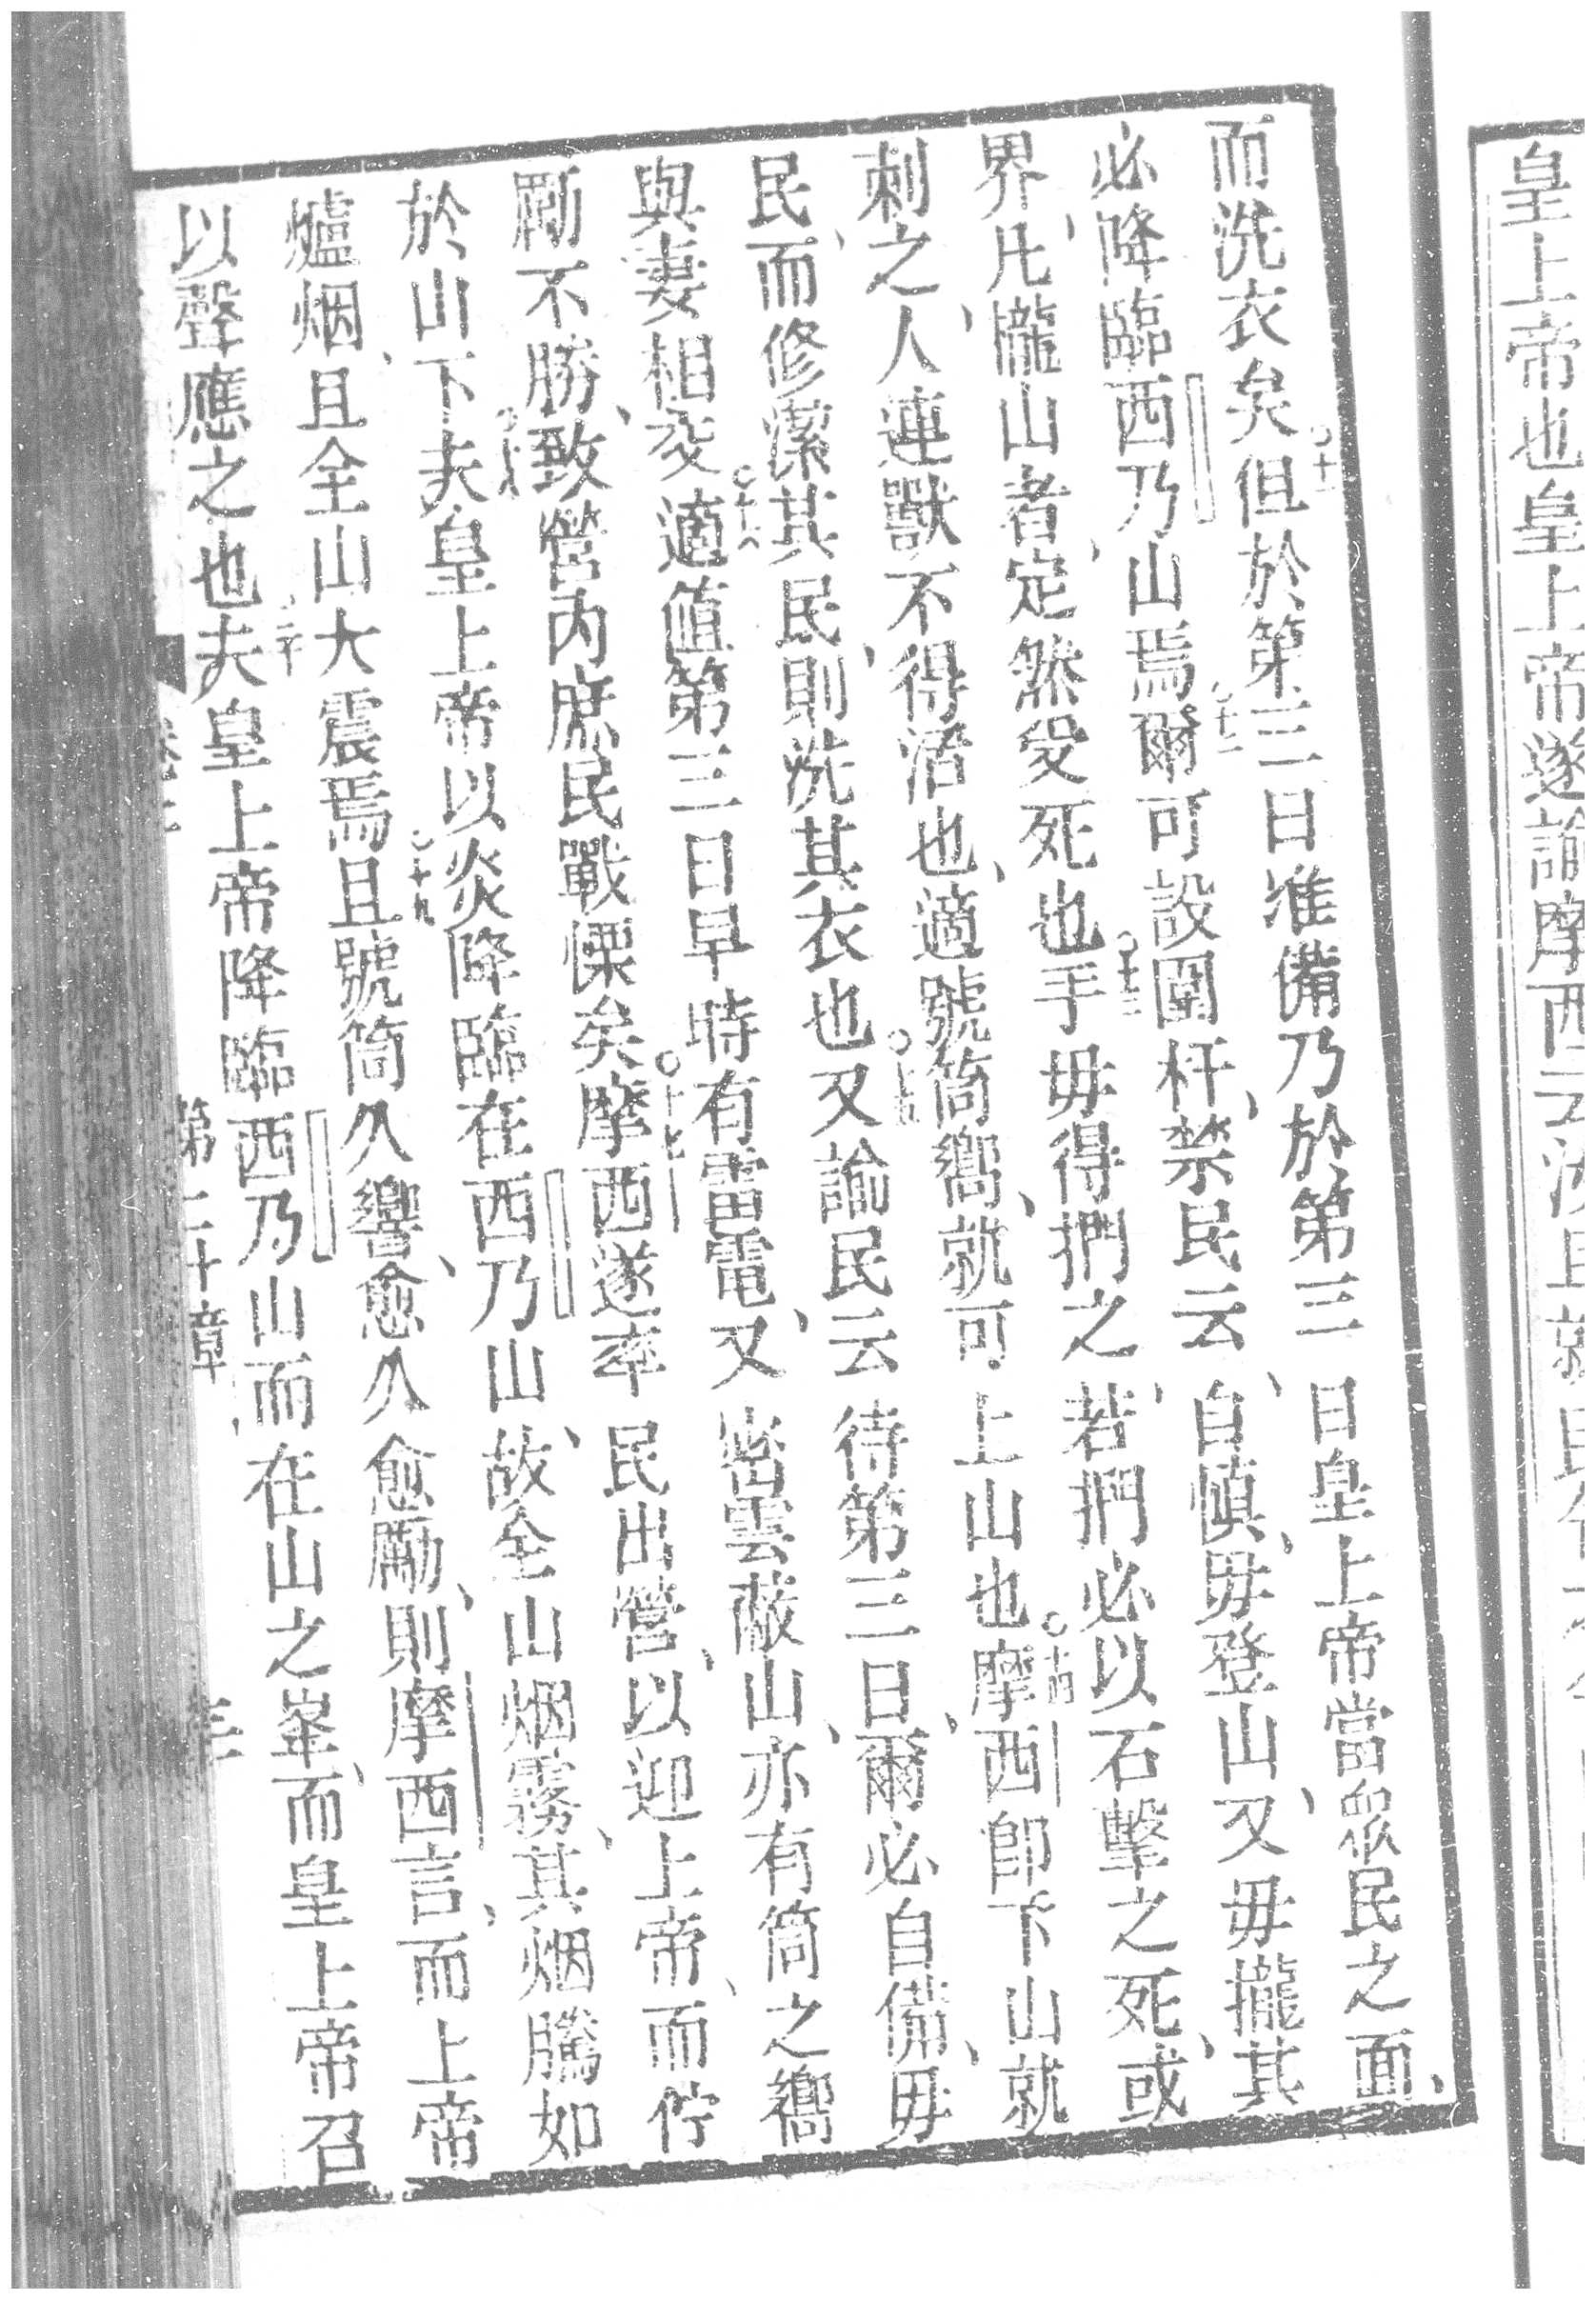 皇上帝也皇上帝遂諭摩西云汝且就民
而洗衣矣○十一但於第三日准備乃於第三日皇上帝當眾民之面、
必降臨西乃山焉○十二爾可設圍杆、禁民云、自慎、毋登山、又毋攏其
界、凡攏山者、定然受死也○十三手毋得捫之、若捫必以石擊之死、或
刺之、人連獸不得活也、適號筒嚮、就可上山也○十四摩西即下山就
民、而修潔其民、則洗其衣也○十五又諭民云待第三日、爾必自備、毋
與妻相交○十六適值第三日早時有雷電、又密雲蔽山、亦有筒之嚮
嚴不勝、致營內庶民戰慄矣○十七摩西遂率民出營、以迎上帝、而佇
於山下○十八夫皇上帝以炎降臨在西乃山、故全山烟霧、其烟騰如
爐烟、且全山大震焉○十九且號筒久響、愈久愈勵、則摩西言、而上帝
以聲應之也○二十夫皇上帝降臨西乃山而在山之峯、而皇上帝召
第二十章